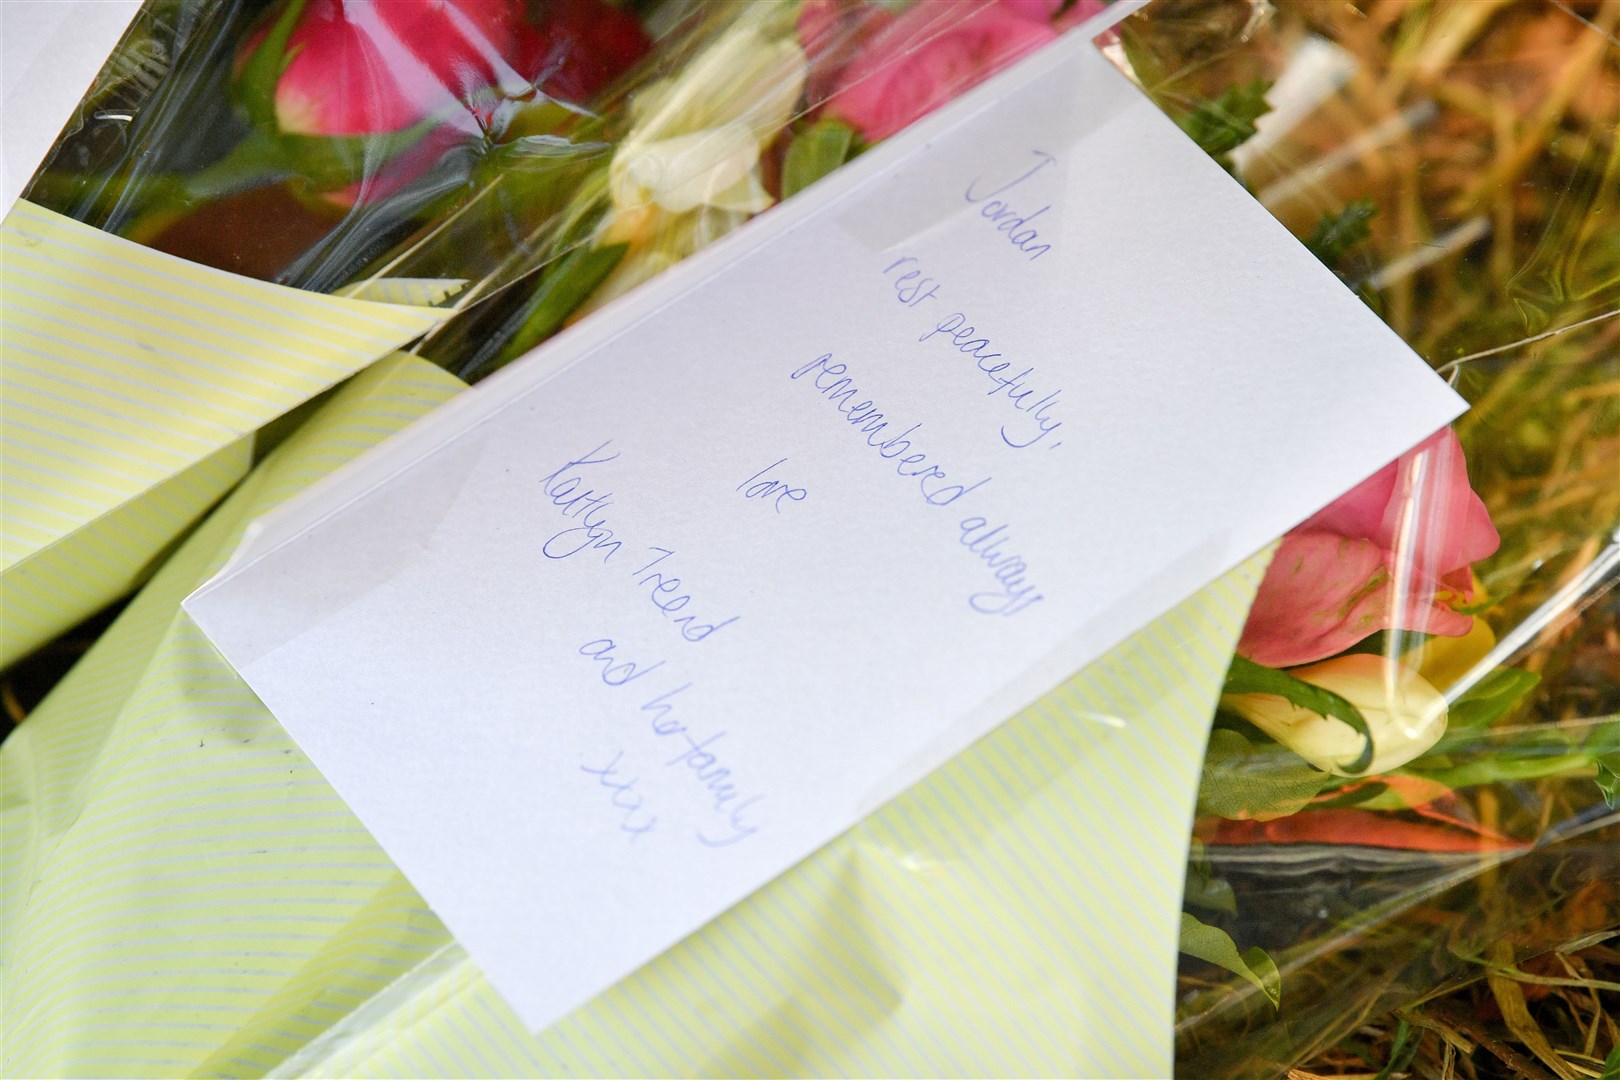 Jordan
rest peacefully,
remembered always
love
Kaitlyn Treend
and her family
xxxx